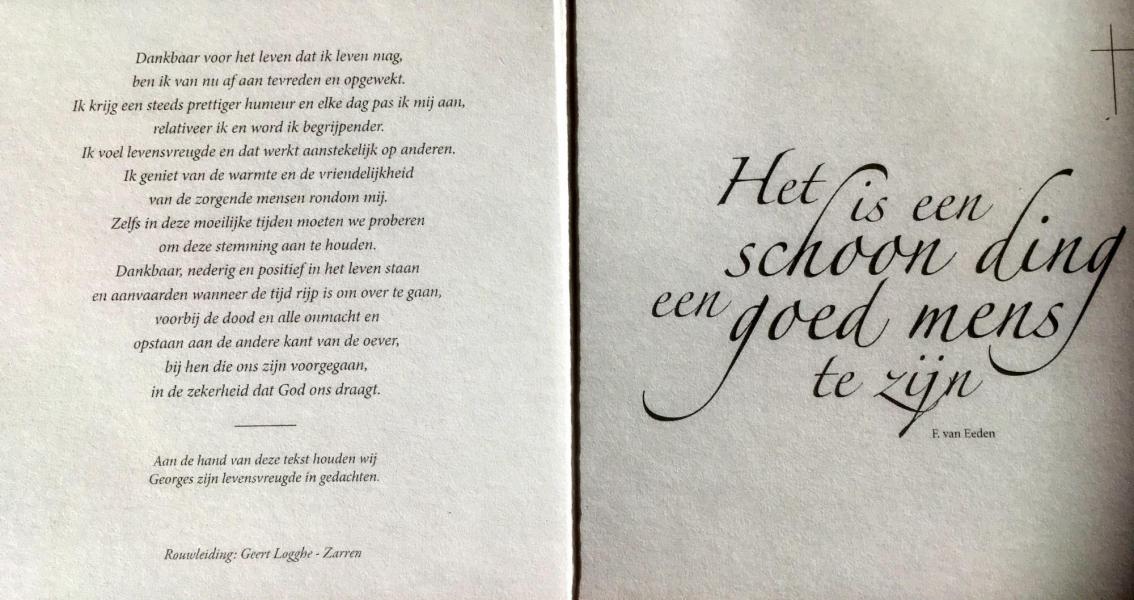 Dankbaar voor het leven dat ik leven mag,
ben ik van nu af aan tevreden en opgewekt.
Ik krijg een steeds prettiger humeur en elke dag pas ik mij aan,
relativeer ik en word ik begrijpender.
Ik voel levensvreugde en dat werkt aanstekelijk op anderen.
Ik geniet van de warmte en de vriendelijkheid
van de zorgende mensen rondom mij.
Zelfs in deze moeilijke tijden moeten we proberen
om deze stemming aan te houden.
Dankbaar, nederig en positief in het leven staan
en aanvaarden wanneer de tijd rijp is om over te gaan,
voorbij de dood en alle onmacht en
opstaan aan de andere kant van de oever,
bij hen die ons zijn voorgegaan,
in de zekerheid dat God ons draagt.
Aan de hand van deze tekst houden wij
Georges zijn levensvreugde in gedachten.
Rouwleiding: Geert Logghe - Zarren
Het is een
schoon ding
een goed mens
te zijn
F. van Eeden